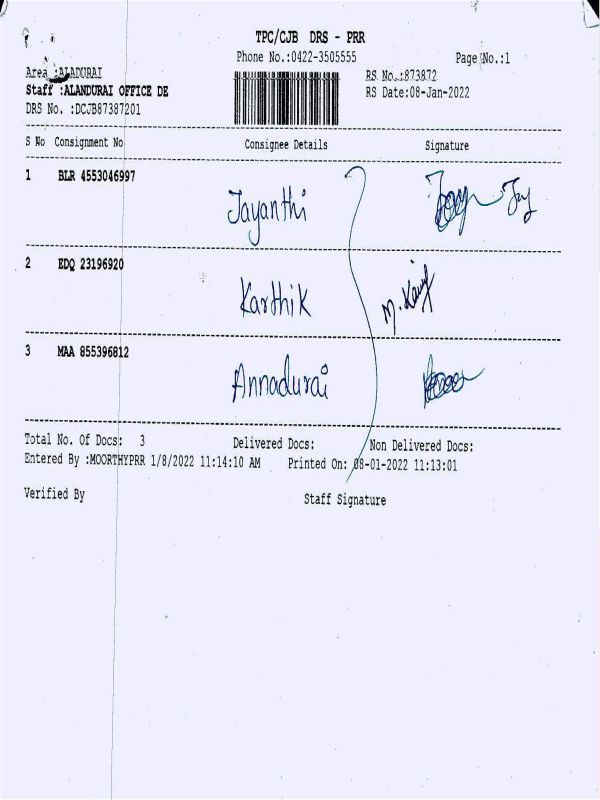 TPC/CJB DRS - PRR
Phone No.:0422-3505555 Page No.:1
Area :ALADURAI RS No.:873872
Staff :ALANDURAI OFFICE DE RS Date:08-Jan-2022
DRS No. :DCJB87387201
S No Consignment No Consignee Details Signature
1 BLR 4553046997 Jayanthi
2 EDQ 23196920 Karthik
3 MAA 855396812 Annadurai
Total No. Of Docs: 3 Delivered Docs: Non Delivered Docs:
Entered By :MOORTHYPRR 1/8/2022 11:14:10 AM Printed On: 08-01-2022 11:13:01
Verified By Staff Signature